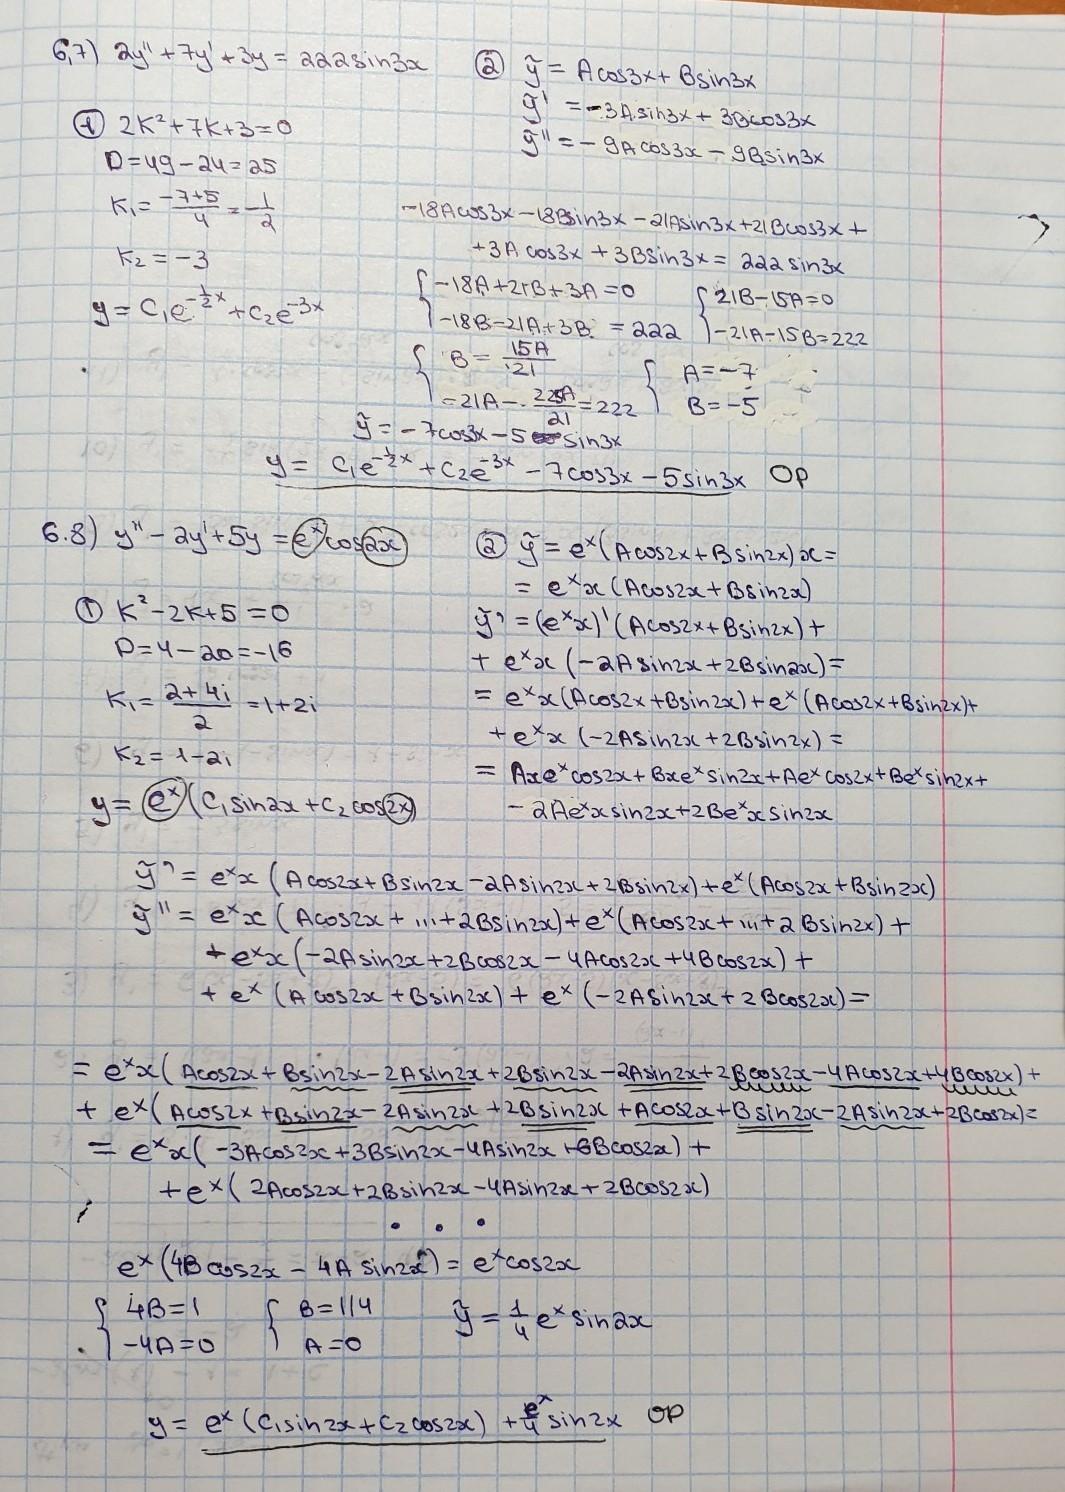 6,7) 2y'' + 7y' + 3y = 222sin3x
① 2K² + 7K + 3 = 0
D = 49 - 24 = 25
K₁ = (-7+5)/4 = -1/2
K₂ = -3
y = C₁e^(-1/2 x) + C₂e^(-3x)
② ỹ = Acos3x + Bsin3x
ỹ' = -3Asin3x + 3Bcos3x
ỹ'' = -9Acos3x - 9Bsin3x
-18Acos3x - 18Bsin3x - 21Asin3x + 21Bcos3x +
+3Acos3x + 3Bsin3x = 222sin3x
{ -18A + 21B + 3A = 0 { 21B - 15A = 0
-18B - 21A + 3B = 222 -21A - 15B = 222
{ B = 15A/21 { A = -7
-21A - 225A/21 = 222 B = -5
ỹ = -7cos3x - 5 sin3x
y = C₁e^(-1/2 x) + C₂e^(-3x) - 7cos3x - 5sin3x ОР
6.8) y'' - 2y' + 5y = eˣcos2x
① K² - 2K + 5 = 0
D = 4 - 20 = -16
K₁ = (2+4i)/2 = 1+2i
K₂ = 1-2i
y = eˣ(C₁sin2x + C₂cos2x
② ỹ = eˣ(Acos2x + Bsin2x)x =
= eˣx(Acos2x + Bsin2x)
ỹ' = (eˣx)'(Acos2x + Bsin2x) +
+ eˣx(-2Asin2x + 2Bsin2x) =
= eˣx(Acos2x + Bsin2x) + eˣ(Acos2x + Bsin2x) +
+ eˣx(-2Asin2x + 2Bsin2x) =
= Axeˣcos2x + Bxeˣsin2x + Aeˣcos2x + Beˣsin2x +
- 2Aeˣxsin2x + 2Beˣxsin2x
ỹ' = eˣx(Acos2x + Bsin2x - 2Asin2x + 2Bsin2x) + eˣ(Acos2x + Bsin2x)
ỹ'' = eˣx(Acos2x + ... + 2Bsin2x) + eˣ(Acos2x + ... + 2Bsin2x) +
+ eˣx(-2Asin2x + 2Bcos2x - 4Acos2x + 4Bcos2x) +
+ eˣ(Acos2x + Bsin2x) + eˣ(-2Asin2x + 2Bcos2x) =
= eˣx(Acos2x + Bsin2x - 2Asin2x + 2Bsin2x - 2Asin2x + 2Bcos2x - 4Acos2x + 4Bcos2x) +
+ eˣ(Acos2x + Bsin2x - 2Asin2x + 2Bsin2x + Acos2x + Bsin2x - 2Asin2x + 2Bcos2x) =
= eˣx(-3Acos2x + 3Bsin2x - 4Asin2x + 6Bcos2x) +
+ eˣ(2Acos2x + 2Bsin2x - 4Asin2x + 2Bcos2x)
. . .
eˣ(4Bcos2x - 4Asin2x) = eˣcos2x
{ 4B = 1 { B = 1/4 ỹ = 1/4 eˣsin2x
-4A = 0 A = 0
y = eˣ(C₁sin2x + C₂cos2x) + eˣ/4 sin2x ОР